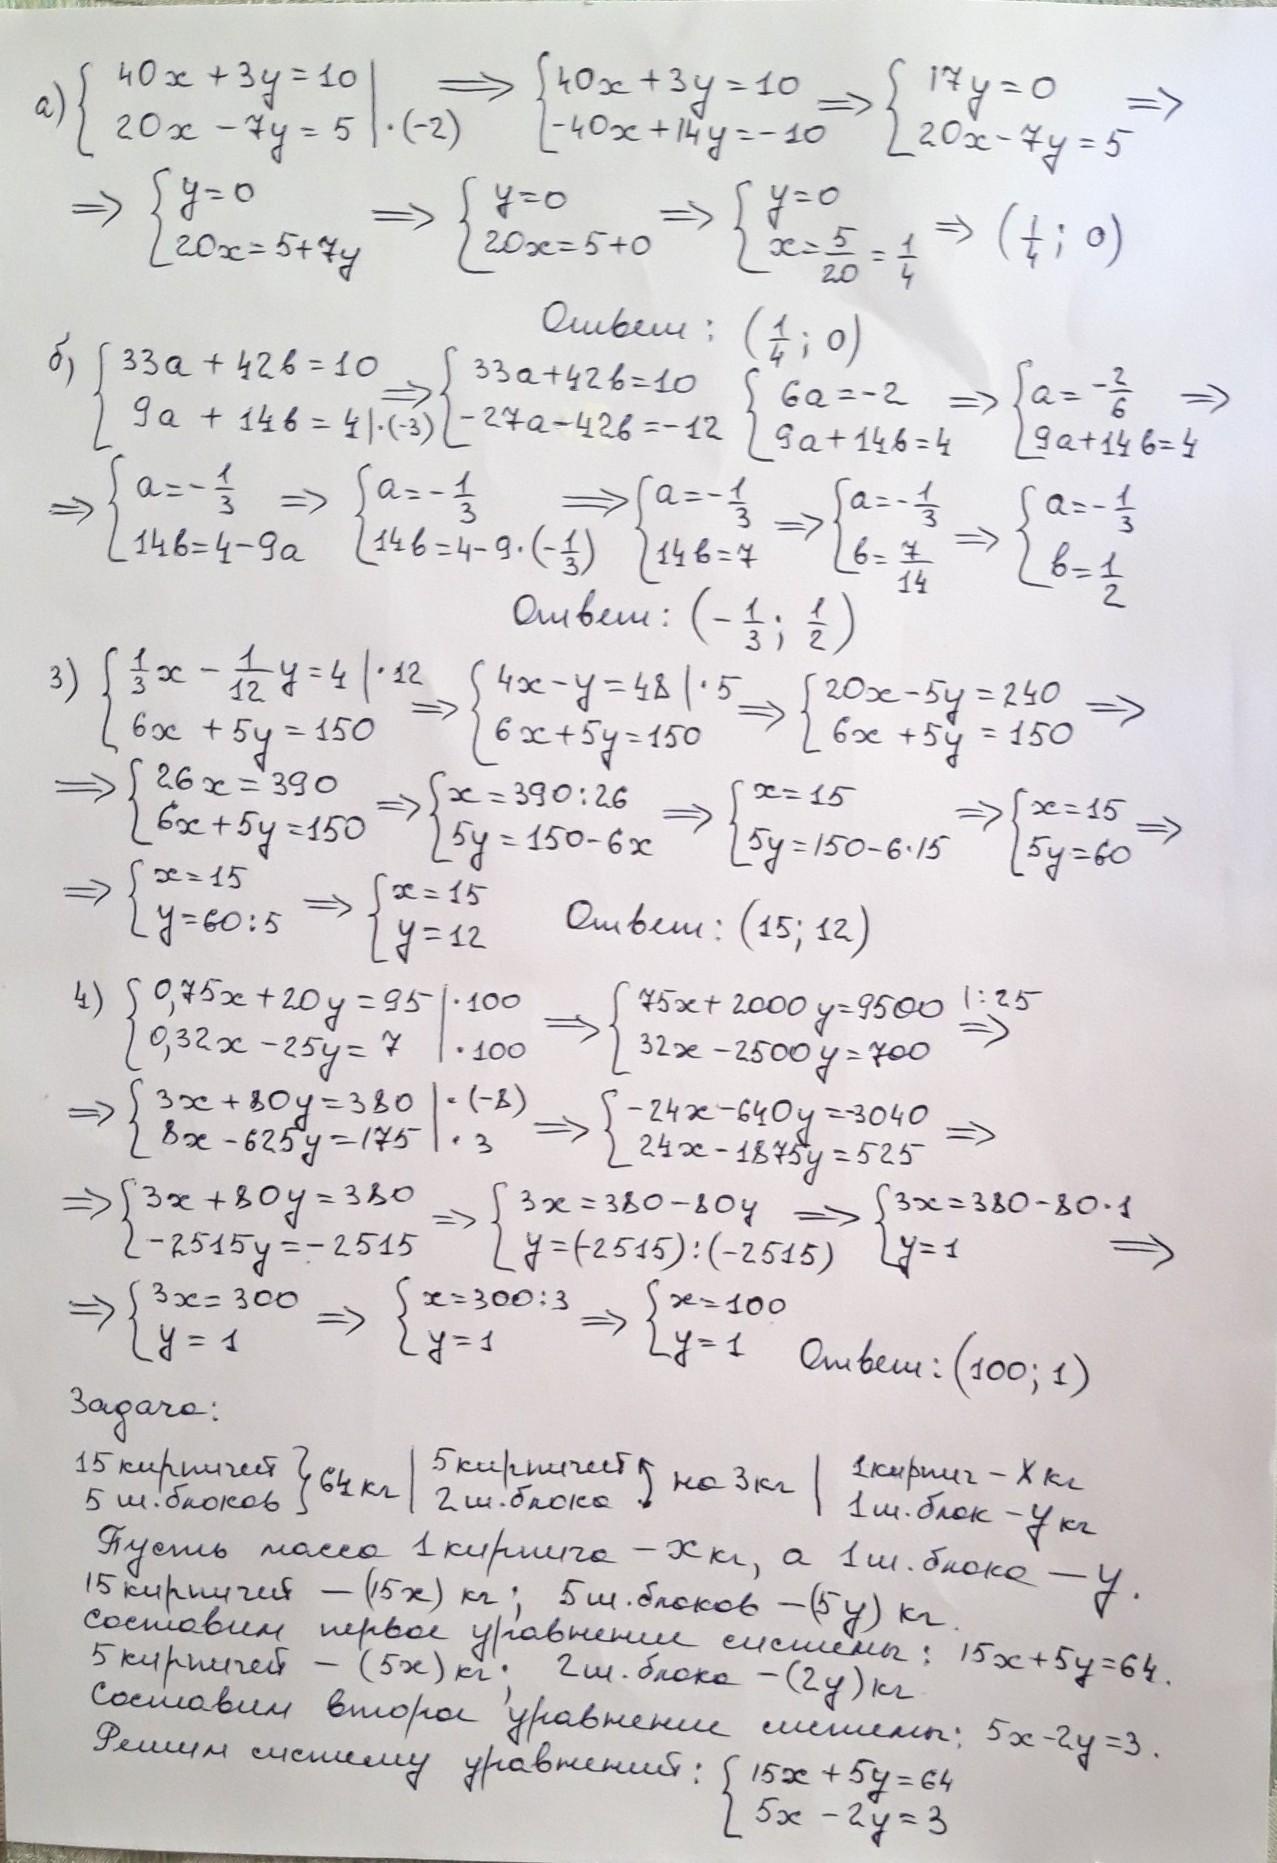 а) { 40x + 3y = 10 | 20x - 7y = 5 | ·(-2) ⟹ { 40x + 3y = 10 -40x + 14y = -10 ⟹ { 17y = 0 20x - 7y = 5 ⟹
⟹ { y = 0 20x = 5 + 7y ⟹ { y = 0 20x = 5 + 0 ⟹ { y = 0 x = 5/20 = 1/4 ⟹ (1/4; 0)
Ответ: (1/4; 0)
б) { 33a + 42b = 10 9a + 14b = 4 | ·(-3) ⟹ { 33a + 42b = 10 -27a - 42b = -12 { 6a = -2 9a + 14b = 4 ⟹ { a = -2/6 9a + 14b = 4 ⟹
⟹ { a = -1/3 14b = 4 - 9a ⟹ { a = -1/3 14b = 4 - 9·(-1/3) ⟹ { a = -1/3 14b = 7 ⟹ { a = -1/3 b = 7/14 ⟹ { a = -1/3 b = 1/2
Ответ: (-1/3; 1/2)
3) { 1/3x - 1/12y = 4 | ·12 6x + 5y = 150 ⟹ { 4x - y = 48 | ·5 6x + 5y = 150 ⟹ { 20x - 5y = 240 6x + 5y = 150 ⟹
⟹ { 26x = 390 6x + 5y = 150 ⟹ { x = 390:26 5y = 150 - 6x ⟹ { x = 15 5y = 150 - 6·15 ⟹ { x = 15 5y = 60 ⟹
⟹ { x = 15 y = 60:5 ⟹ { x = 15 y = 12 Ответ: (15; 12)
4) { 0,75x + 20y = 95 | ·100 0,32x - 25y = 7 | ·100 ⟹ { 75x + 2000y = 9500 |:25 32x - 2500y = 700 ⟹
⟹ { 3x + 80y = 380 | ·(-8) 8x - 625y = 175 | ·3 ⟹ { -24x - 640y = -3040 24x - 1875y = 525 ⟹
⟹ { 3x + 80y = 380 -2515y = -2515 ⟹ { 3x = 380 - 80y y = (-2515):(-2515) ⟹ { 3x = 380 - 80·1 y = 1 ⟹
⟹ { 3x = 300 y = 1 ⟹ { x = 300:3 y = 1 ⟹ { x = 100 y = 1 Ответ: (100; 1)
Задача:
15 кирпичей } 64 кг | 5 кирпичей } на 3 кг | 1 кирпич - x кг
5 ш.блоков | 2 ш.блока | 1 ш.блок - y кг
Пусть масса 1 кирпича - x кг, а 1 ш.блока - y.
15 кирпичей - (15x) кг; 5 ш.блоков - (5y) кг.
Составим первое уравнение системы: 15x + 5y = 64.
5 кирпичей - (5x) кг; 2 ш.блока - (2y) кг
Составим второе уравнение системы; 5x - 2y = 3.
Решим систему уравнений: { 15x + 5y = 64
5x - 2y = 3